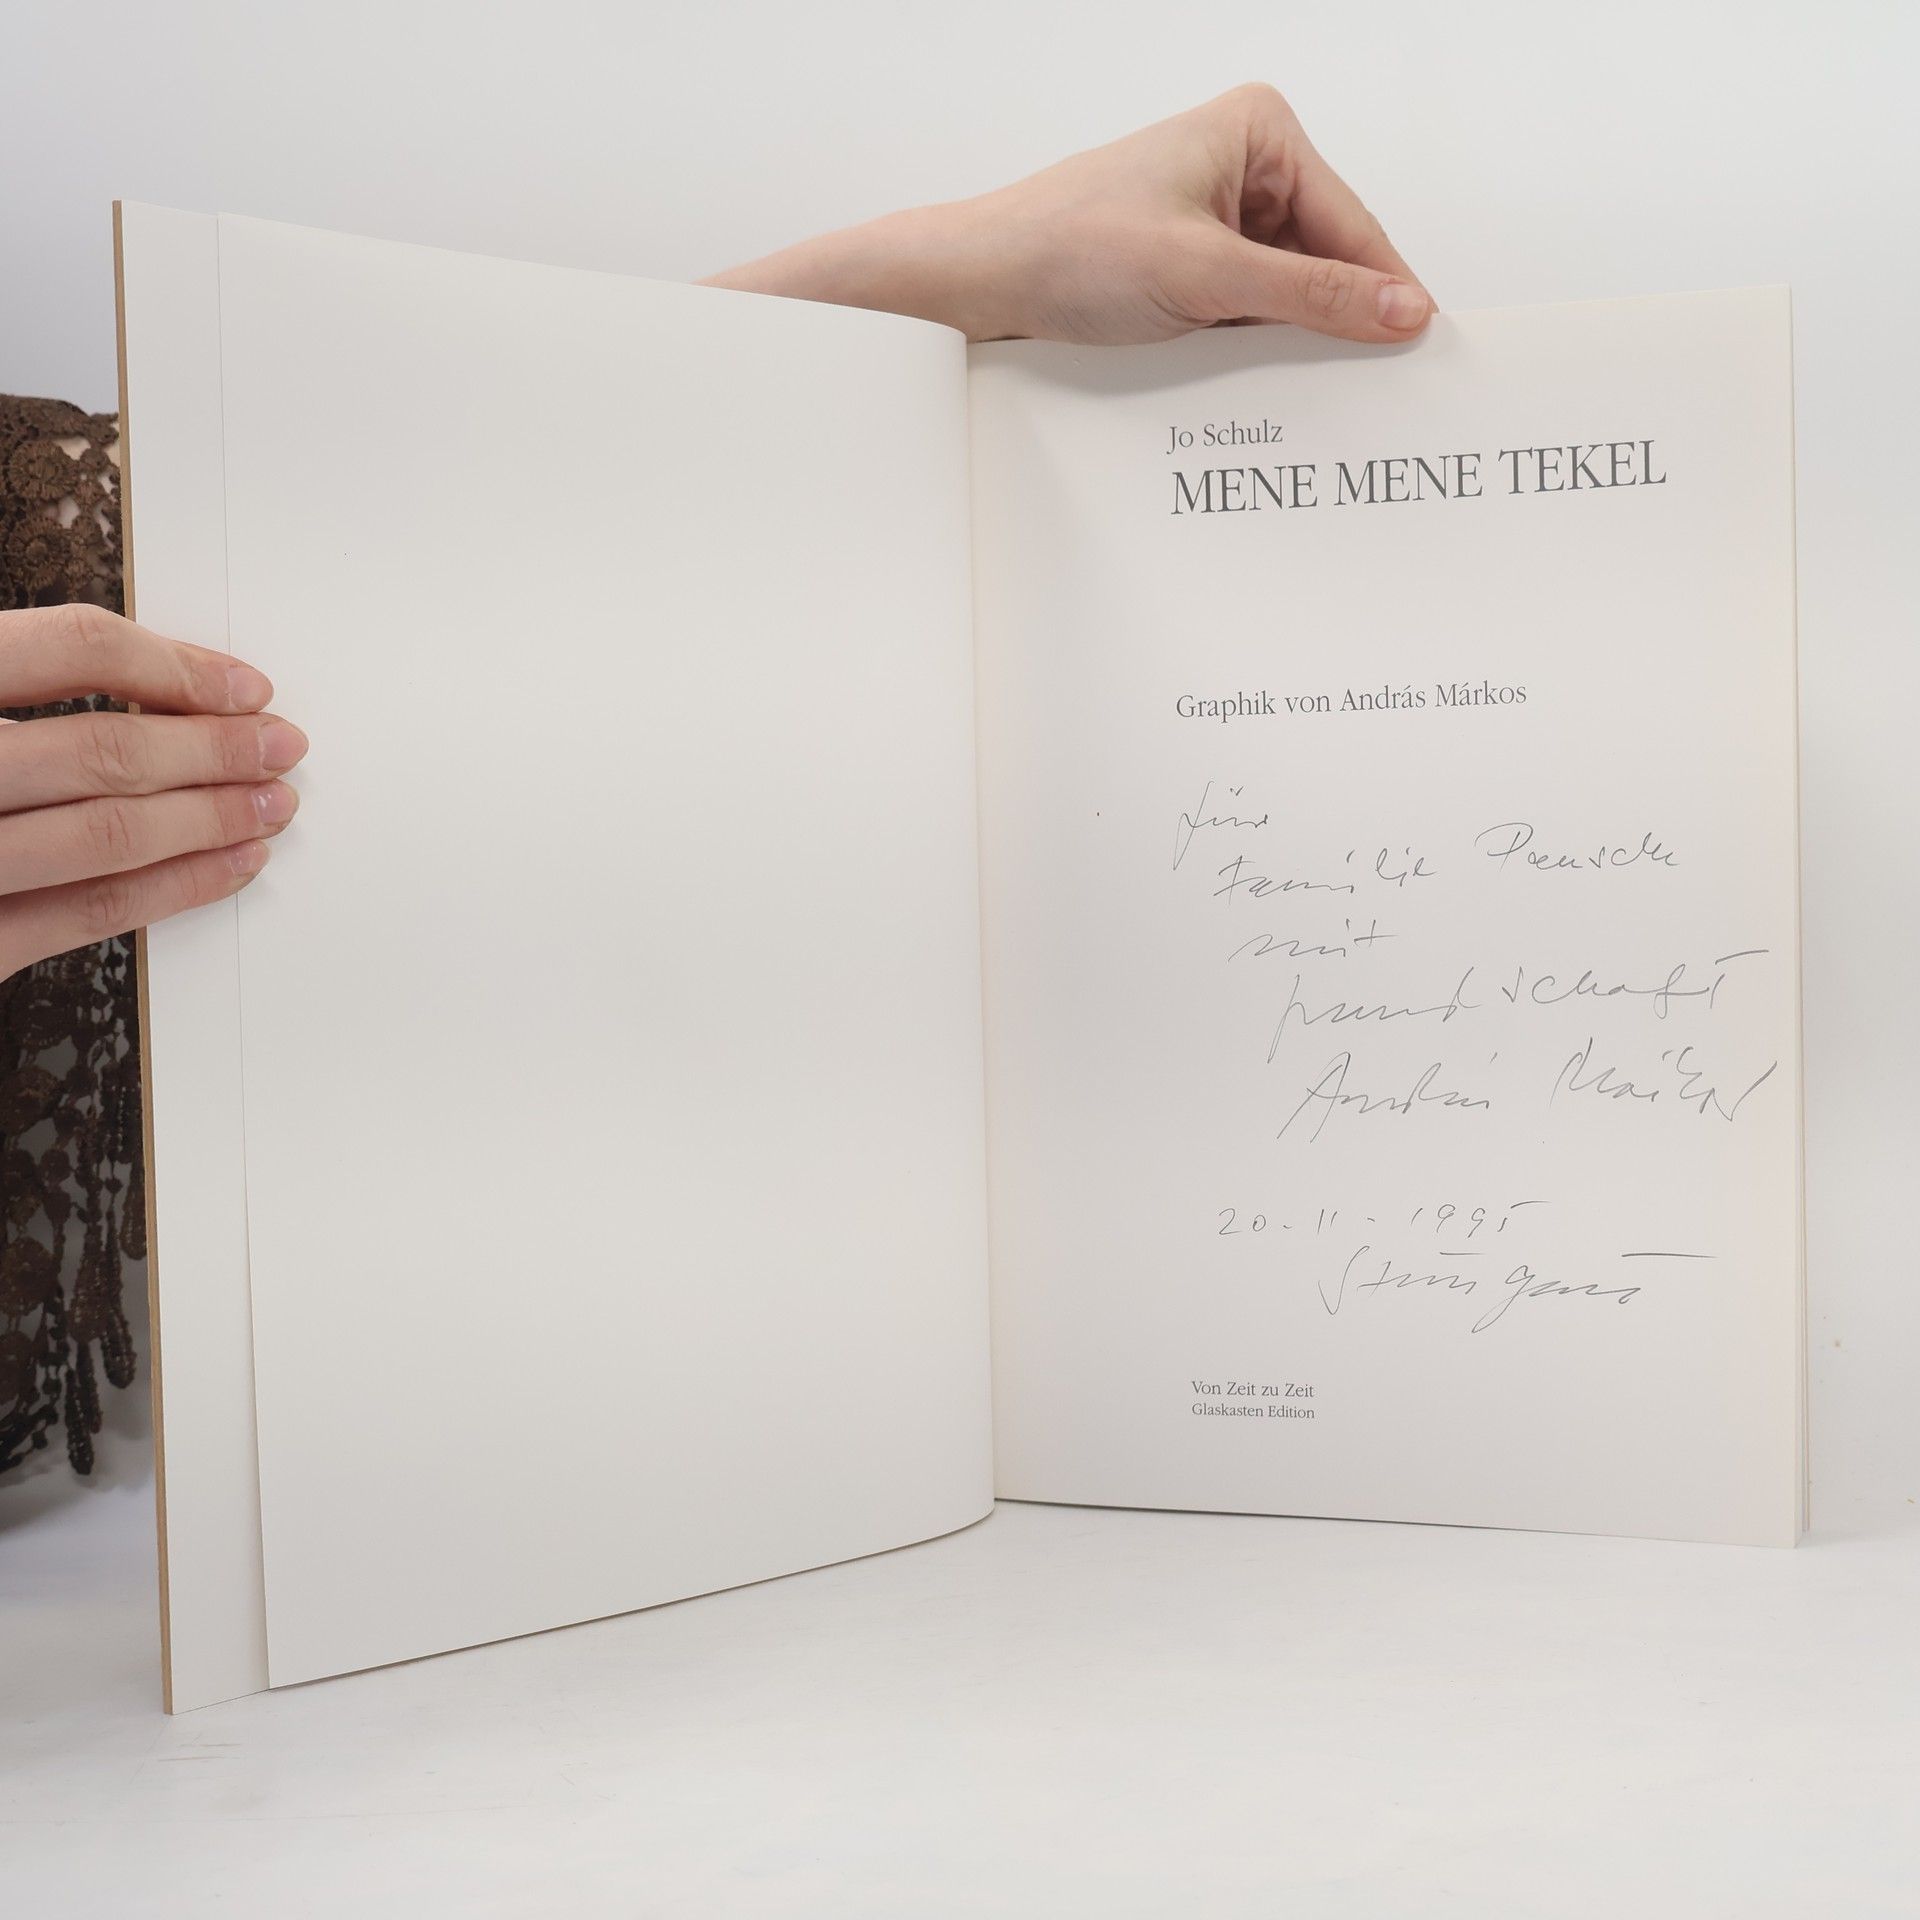 Jo Schulz
MENE MENE TEKEL
Graphik von András Márkos
für
Familie
mit
freundschaft
András Márkos
20-11-1995
Stuttgart
Von Zeit zu Zeit
Glaskasten Edition